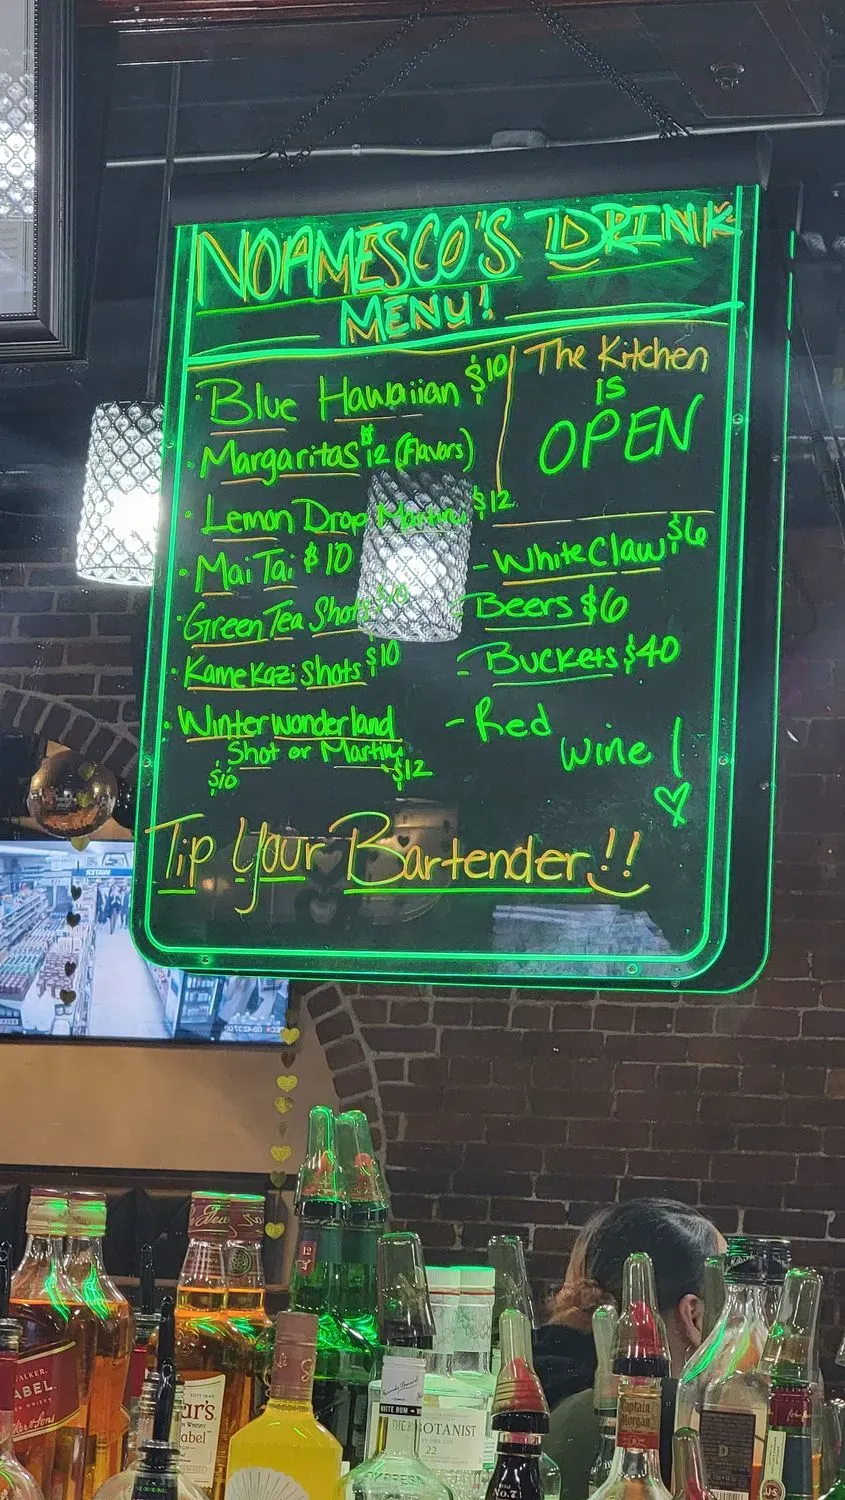 NOAMESCO'S DRINK
MENU!
· Blue Hawaiian $10
· Margaritas $12 (Flavors)
· Lemon Drop Martini $12
· Mai Tai $10
· Green Tea Shots $10
· Kamekazi Shots $10
· Winter wonderland
Shot or Martini
$10 $12
The Kitchen
is
OPEN
- White Claw $6
- Beers $6
- Buckets $40
- Red
Wine!
Tip Your Bartender!!
WALKER.
LABEL
abel
12
WHITE RUM
THE BOTANIST
22
Captain
Morgan
No.7